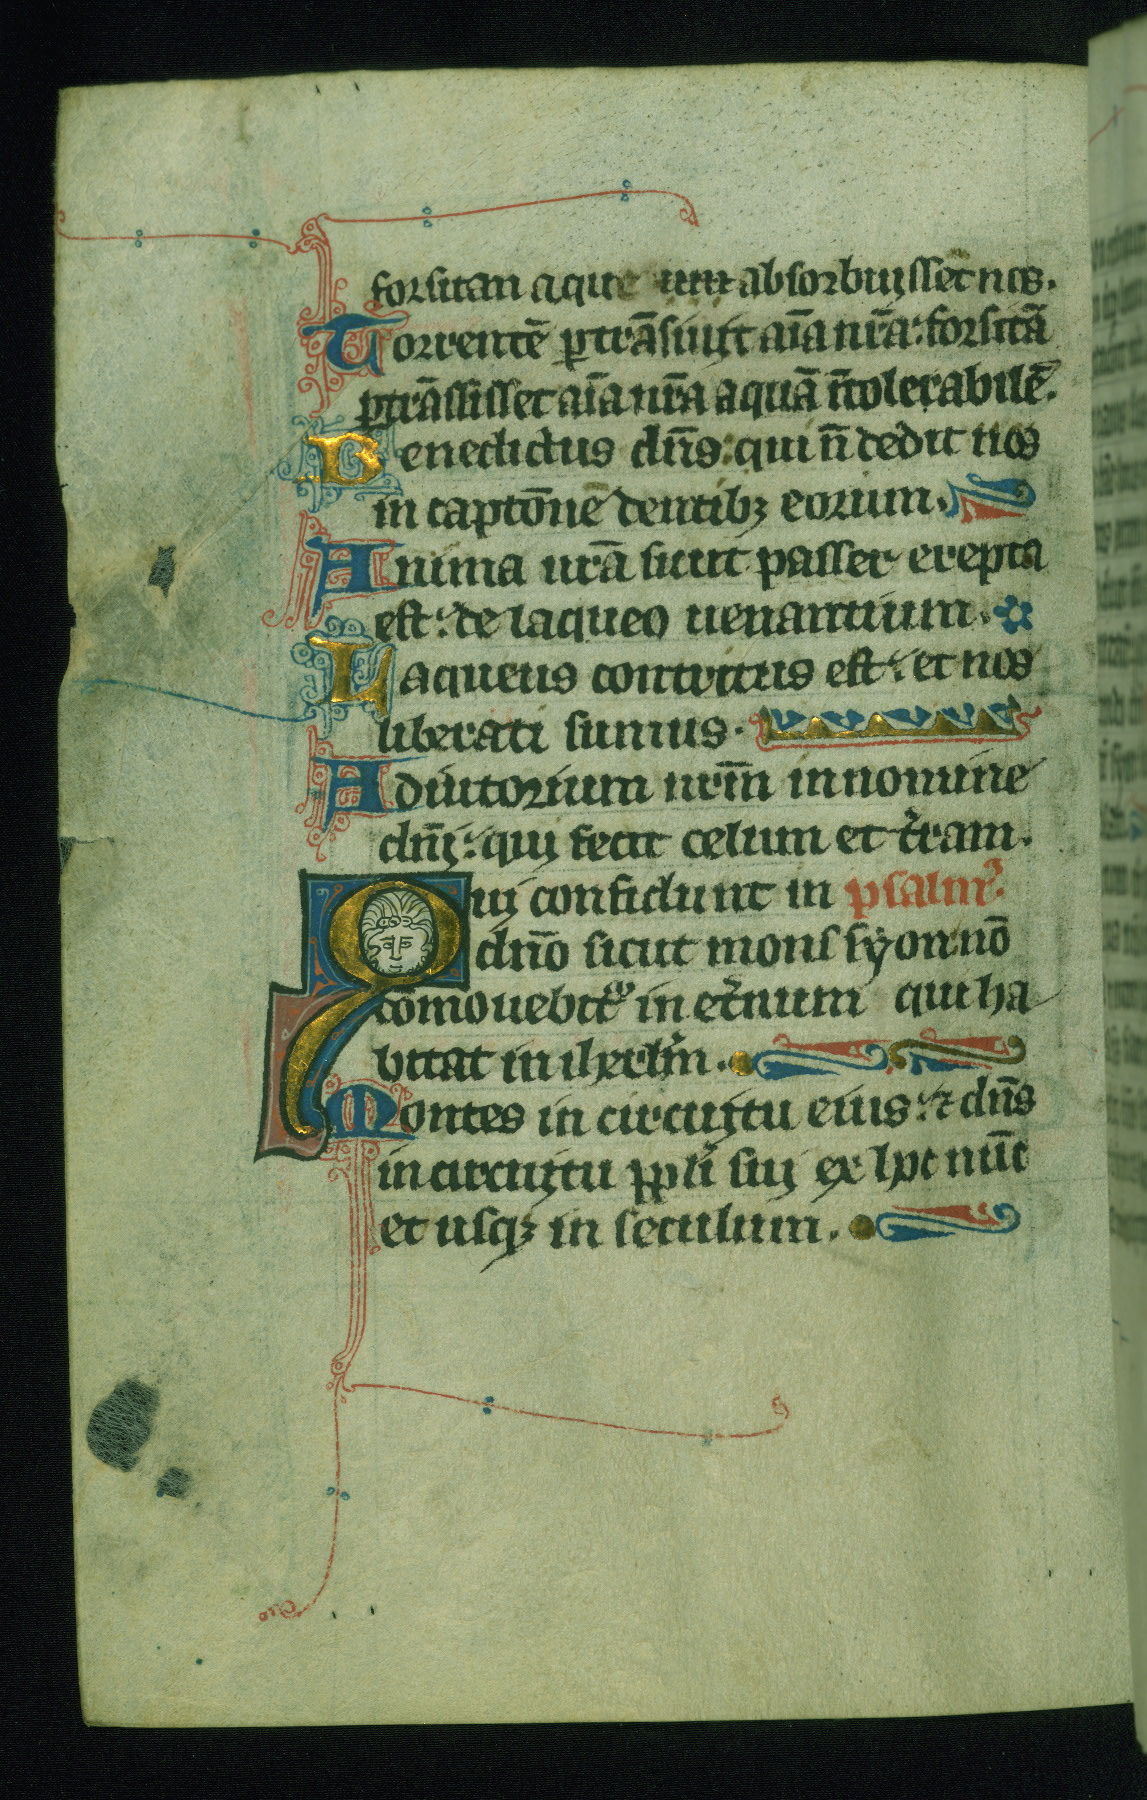 forsitan aque absorbuisset nos.
Torrentē ꝑtrāsiuit aīa nr̄a: forsitā
ꝑtrāssisset aīa nr̄a aquā ītolerabilē.
Benedictus dn̄s: qui n̄ dedit nos
in captōnē dentibꝫ eorum.
Anima nr̄a sicut passer erepta
est: de laqueo uenantium.
Laqueus contritus est: et nos
liberati sumus.
Adiutorium nr̄m in nomine
dn̄j: quj fecit celum et t̄ram.
Quj confidunt in psalm᾿.
dn̄o sicut mons syon nō
cōmouebit᷑ in et̄num qui ha
bitat in iherl̄m.
Montes in circujtu eius: ⁊ dn̄s
in circujtu ppl̄i suj ex hoc nūc
et usqꝫ in seculum.